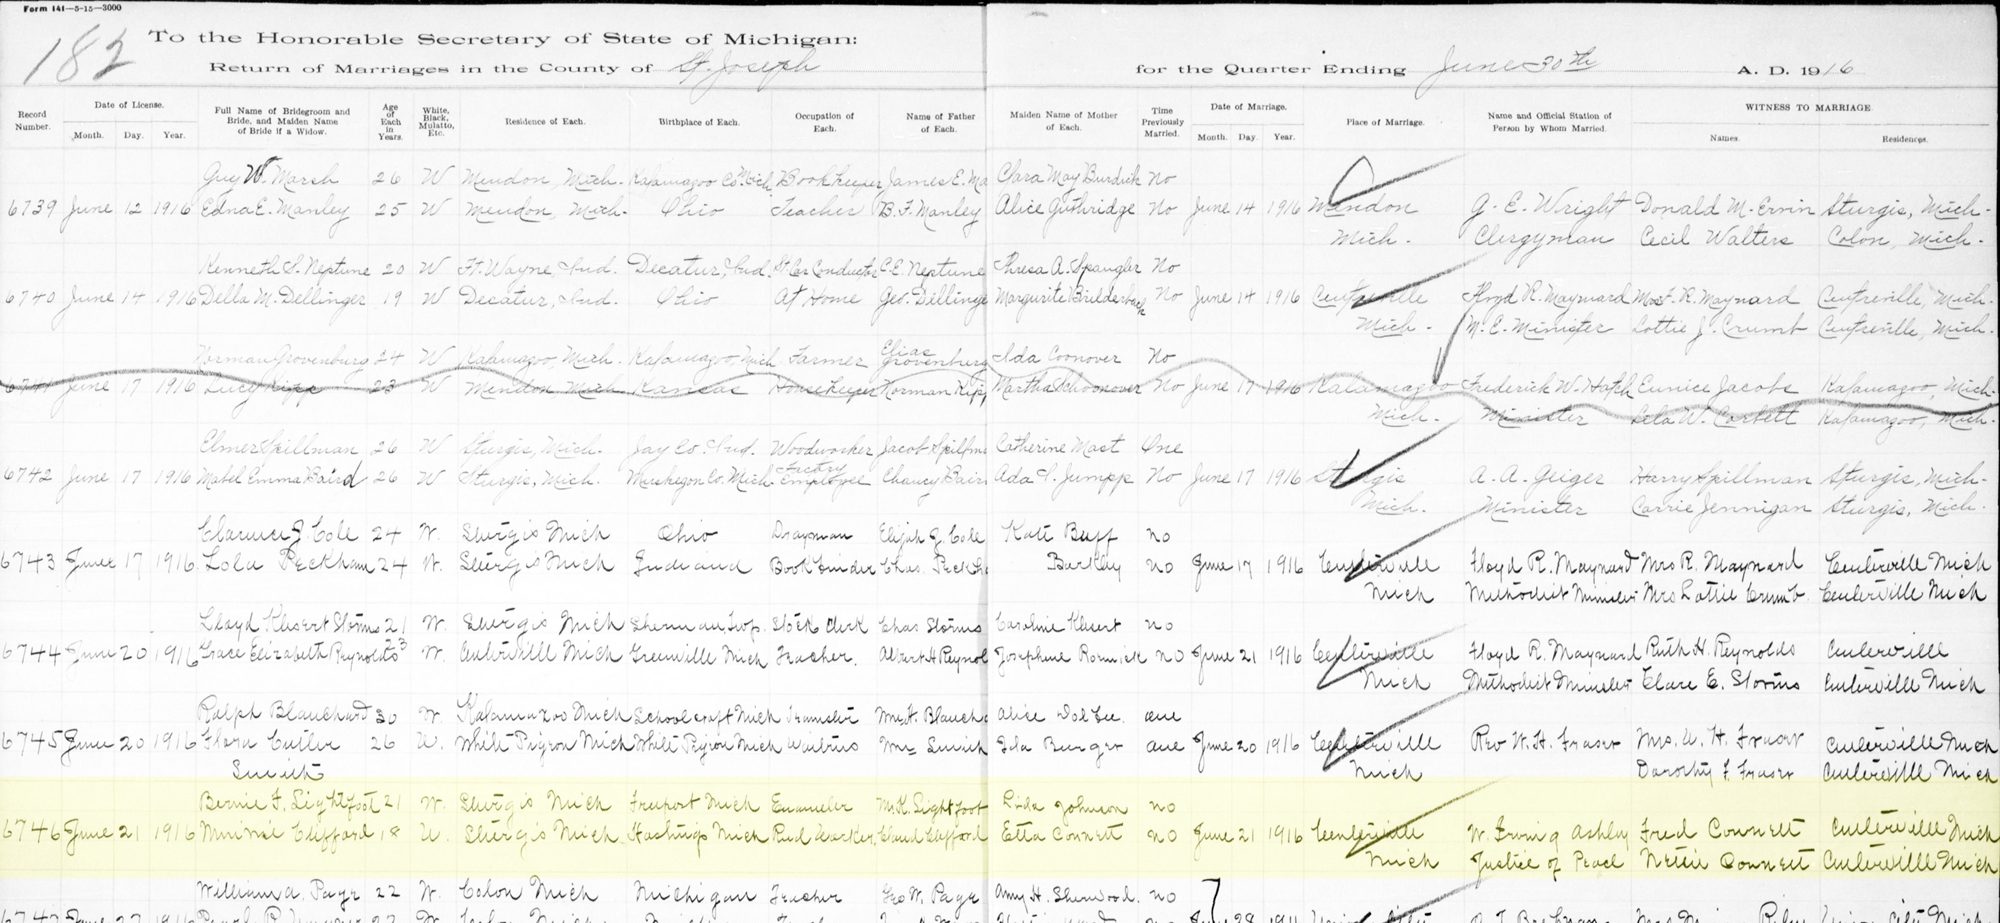 Form 141—5-15—3000
182
To the Honorable Secretary of State of Michigan:
Return of Marriages in the County of St. Joseph for the Quarter Ending June 30th A. D. 1916
Record Number. Date of License. Month. Day. Year. Full Name of Bridegroom and Bride, and Maiden Name of Bride if a Widow. Age of Each in Years. White, Black, Mulatto, Etc. Residence of Each. Birthplace of Each. Occupation of Each. Name of Father of Each. Maiden Name of Mother of Each. Time Previously Married. Date of Marriage. Month. Day. Year. Place of Marriage. Name and Official Station of Person by Whom Married. WITNESS TO MARRIAGE. Names. Residences.
Guy W. Marsh 26 W Mendon, Mich. Kalamazoo Co. Mich. Bookkeeper James E. Ma Clara May Burdick No
6739 June 12 1916 Edna E. Manley 25 W Mendon, Mich. Ohio Teacher B. F. Manley Alice Guthridge No June 14 1916 Mendon G. E. Wright Donald M. Ervin Sturgis, Mich.
Mich. Clergyman Cecil Walters Colon, Mich.
Kenneth S. Neptune 20 W Ft. Wayne, Ind. Decatur, Ind. St Car Conductor C. E. Neptune Thresa A. Spangler No
6740 June 14 1916 Della M. Dellinger 19 W Decatur, Ind. Ohio At Home Geo. Dellinge Margurite Builderback No June 14 1916 Centreville Floyd R. Maynard R. Maynard Centreville, Mich.
Mich. M. E. Minister Lottie J. Crumb Centreville, Mich.
Norman Grovenburg 24 W Kalamazoo, Mich. Kalamazoo, Mich Farmer Elias Grovenburg Ida Coonover No
6741 June 17 1916 Lucy Kipp 23 W Mendon Mich Kansas Homekeeper Norman Kipp Martha Schoonover No June 17 1916 Kalamazoo Frederick W. Hatch Eunice Jacobs Kalamazoo, Mich.
Mich. Minister Lela W. Corbett Kalamazoo, Mich.
Elmer Spillman 26 W Sturgis, Mich. Jay Co. Ind. Woodworker Jacob Spillma Catherine Mast One
6742 June 17 1916 Mabel Emma Baird 26 W Sturgis, Mich. Muskegon Co. Mich Factory Employee Chaucy Bair Ada S. Jumpp No June 17 1916 Sturgis A. A. Geiger Harry Spillman Sturgis, Mich.
Mich. Minister Carrie Jennigan Sturgis, Mich.
Clarence J. Cole 24 W. Sturgis Mich Ohio Drayman Elijah J. Cole Kate Buff no
6743 June 17 1916 Lola Peckham 24 W. Sturgis Mich Indiana Book binder Chas. Peck Barkley no June 17 1916 Centerville Floyd R. Maynard Mrs R. Maynard Centerville Mich
Mich Methodist Minister Mrs Lottie Crumb Centerville Mich
Lloyd Klesert Storms 21 W. Sturgis Mich Sherman Twp. Stock clerk Chas Storms Caroline Klesert no
6744 June 20 1916 Grace Elizabeth Reynolds 23 W. Centerville Mich Greenville Mich Teacher. Albert H Reynol Josephine no June 21 1916 Centerville Floyd R. Maynard Ruth H. Reynolds Centerville
Mich Methodist Minister Clare E. Storms Centerville Mich
Ralph Blanchard 30 W. Kalamazoo Mich Schoolcraft Mich Teamster Wm. H. Blancha Alice one
6745 June 20 1916 Flora Cutler 26 W. White Pigeon Mich White Pigeon Mich Smith Ida Burger one June 20 1916 Centerville Rev W. H. Fraser Mrs. W. H. Fraser Centerville Mich
Smith Mich Dorothy F. Fraser Centerville Mich
Bernie F. Lightfoot 21 W. Sturgis Mich Freeport Mich Enameler Wm K. Lightfoot Linda Johnson no
6746 June 21 1916 Minnie Clifford 18 W. Sturgis Mich Hastings Mich Reed Worker Claud Clifford Etta Connett no June 21 1916 Centerville W. Irving Ashley Fred Connett Centerville Mich
Mich Justice of Peace Nettie Connett Centerville Mich
William A. Page 22 W. Colon Mich Michigan Teacher Geo W. Page Amy H. Sherwood. no